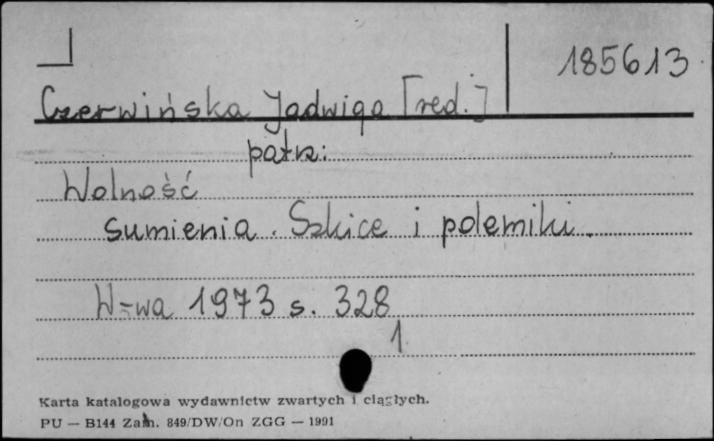 185613
Czerwińska Jadwiga [red.]
patrz:
Wolność
sumienia. Szkice i polemiki.
W-wa 1973 s. 328
1
Karta katalogowa wydawnictw zwartych i ciągłych.
PU — B144 Zam. 849/DW/On ZGG — 1991